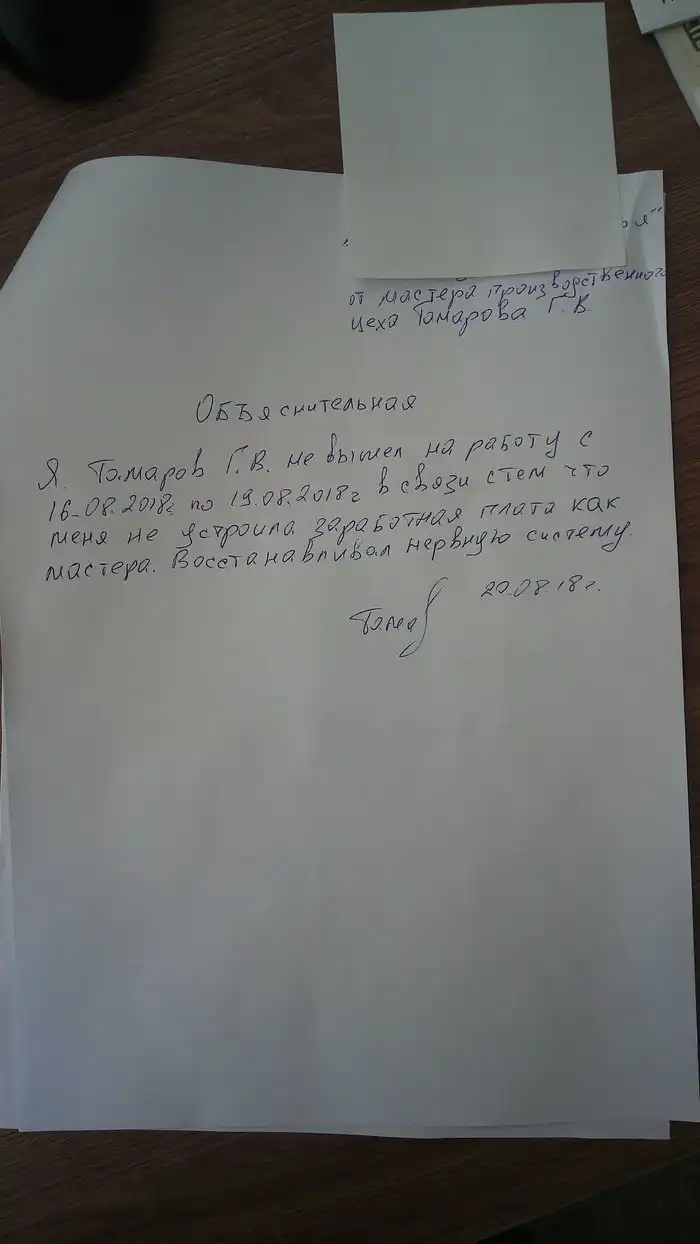 от мастера производственного
цеха Тамарова Г.В.
Объяснительная
Я. Тамаров Г.В. не вышел на работу с
16-08.2018г по 19.08.2018г в связи стем что
меня не устроила заработная плата как
мастера. Восстанавливал нервную систему.
20.08.18г.